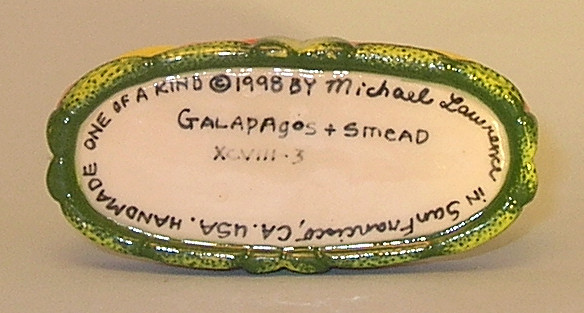 HANDMADE ONE OF A KIND ©1998 BY Michael Lawrence IN San Francisco, CA. USA.
GALAPAgos + SmEAD
XCVIII-3